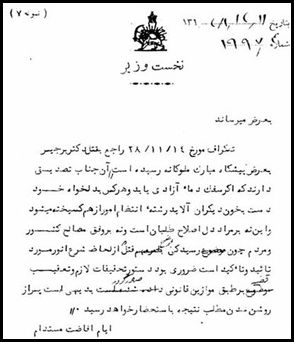 (نمونه ۷)
بتاریخ
شماره ۱۹۹۷
نخست وزیر
بعرض میرساند
تلگراف مورخ ۲۸/۱۱/۱۴ راجع بقتل دکتر برجیس
بعرض پیشگاه مبارک ملوکانه رسیده است آن جناب تصدیق
دارند که اگر سفک دماء آزادی یابد و هرکس بدلخواه خود
دست بخون دیگران آلاید رشته انتظام امور از هم گسیخته میشود
و این نه بر مرادِ دل اصلاح طلبان است و نه بر وفق مصالح کشور
و مردم چون رسیدگی قتل از لحاظ شرع انور مورد
تائید و تاکید است ضروری بود دستور تحقیقات لازم و تعقیب
قضیه بر طبق موازین قانونی صادر گردد بدیهی است پس از
روشن شدن مطلب نتیجه باستحضار خواهد رسید
ایام افاضت مستدام